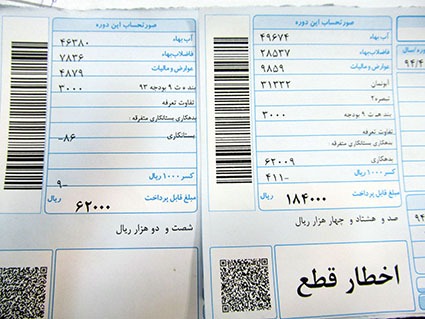 دوره / سال
۹۴/۴
صورتحساب این دوره
آب بهاء ۴۹۶۷۴
فاضلاب بهاء ۲۸۵۳۷
عوارض و مالیات ۹۸۵۹
آبونمان ۳۱۳۳۲
تبصره۲
بند هـ ت ۹ بودجه ۳۰۰۰
تفاوت تعرفه
بدهکاری بستانکاری متفرقه:
بدهکاری ۶۲۰۰۹
کسر ۱۰۰۰ ریال ۴۱۱-
مبلغ قابل پرداخت ۱۸۴۰۰۰ ریال
صد و هشتاد و چهار هزار ریال
اخطار قطع
صورتحساب این دوره
آب بهاء ۴۶۳۸۰
فاضلاب بهاء ۷۸۳۶
عوارض و مالیات ۴۸۷۹
بند ه ت ۹ بودجه ۹۳ ۳۰۰۰
تفاوت تعرفه
بدهکاری بستانکاری متفرقه:
بستانکاری ۸۶-
کسر ۱۰۰۰ ریال ۹-
مبلغ قابل پرداخت ۶۲۰۰۰ ریال
شصت و دو هزار ریال